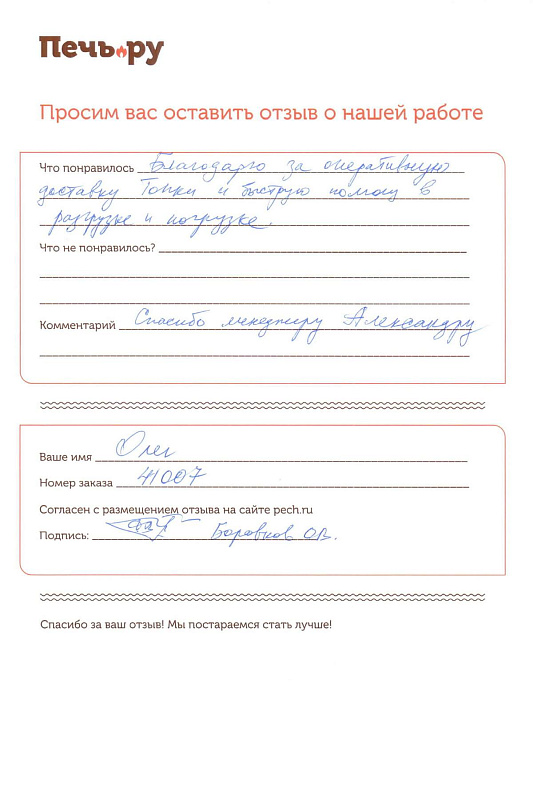 Печь.ру
Просим вас оставить отзыв о нашей работе
Что понравилось Благодарю за оперативную
доставку Топки и быструю помощь в
разгрузке и погрузке.
Что не понравилось?
Комментарий Спасибо менеджеру Александру
Ваше имя Олег
Номер заказа 41007
Согласен с размещением отзыва на сайте pech.ru
Подпись: Боровков О.В.
Спасибо за ваш отзыв! Мы постараемся стать лучше!